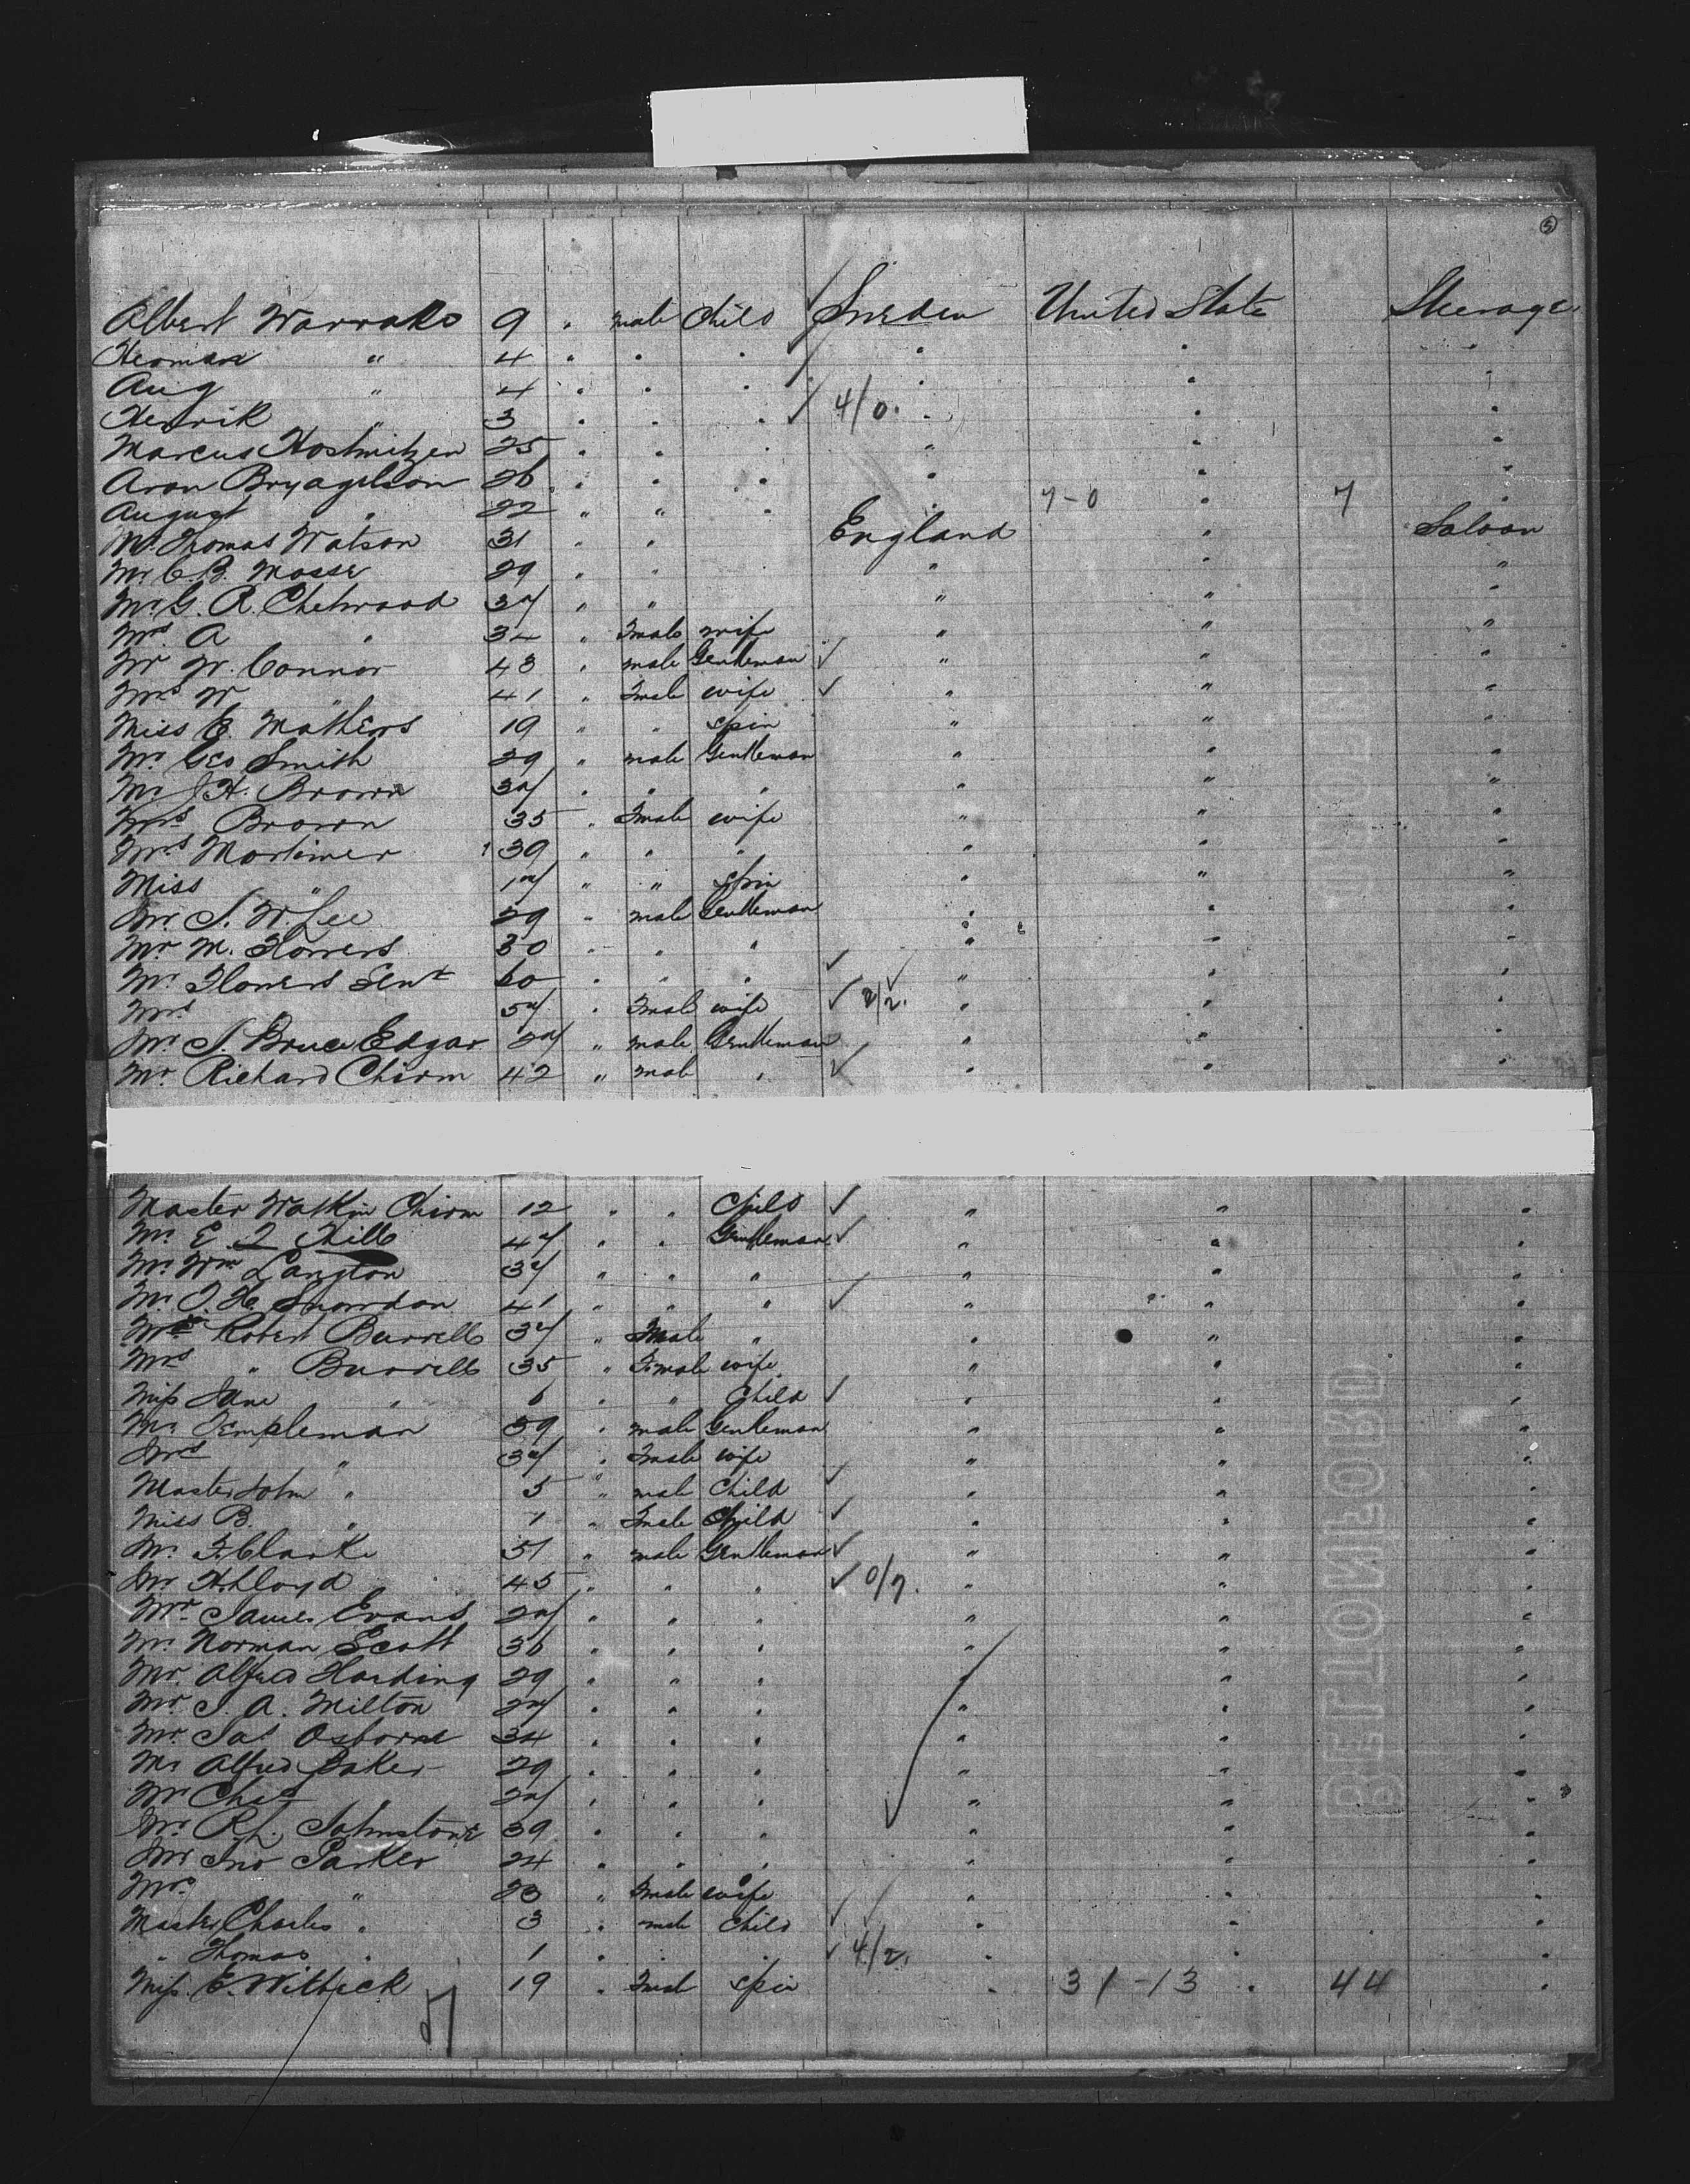 5
Albert Warrako 9 " male Child Sweden United State Steerage
Herman " 4 " " " " " "
Aug " 4 " " " " " "
Henrik " 3 " " " 4/0. " " "
Marcus 25 " " " " " "
Aron 26 " " " " " "
August " 22 " " " " 7-0 " 7 "
Mr Thomas Watson 31 " " England " Saloon
Mr C. B. Mosse 29 " " " " "
Mr G. R. Chetwood 37 " " " " "
Mrs A " 34 " Fmale wife " " "
Mr W. Connor 43 " male Gentleman " " "
Mrs W " 41 " Fmale wife " " "
Miss E. Mathers 19 " " spin " " "
Mr Geo Smith 29 " male Gentleman " " "
Mr J H. Brown 37 " " " " " "
Mrs Brown 35 " Fmale wife " " "
Mrs Mortimer 39 " " " " " "
Miss " 17 " " spin " " "
Mr S. W Lee 29 " male Gentleman " " "
Mr M. Flowers 30 " " " " " "
Mr Flowers Senr 60 " " " " " "
Mrs 57 " Fmale wife 2/2. " " "
Mr S. Bruce Edgar 27 " male Gentleman " " "
Mr Richard Chirm 42 " male " " " "
Master Watkin Chirm 12 " " Child " " "
Mr E. Hill 47 " " Gentleman " " "
Mr Wm Langton 37 " " " " " "
Mr H. Snowdon 41 " " " " " "
Mr Robert Burrell 37 " Male " " " "
Mrs " Burrell 35 " Female wife " " "
Miss Jane " 6 " " Child " " "
Mr Templeman 39 " male Gentleman " " "
Mrs " 37 " Fmale wife " " "
Master John " 5 " male Child " " "
Miss B. " 1 " Fmale Child " " "
Mr F. Clarke 51 " male Gentleman " " "
Mr H Lloyd 45 " " " 0/7. " " "
Mr James Evans 27 " " " " " "
Mr Norman Scott 36 " " " " " "
Mr. Alfred Harding 29 " " " " " "
Mr. S. A. Milton 27 " " " " " "
Mr. Jas Osborne 34 " " " " " "
Mr Alfred Baker 29 " " " " " "
Mr Chas " 27 " " " " " "
Mr. Johnstone 39 " " " " " "
Mr Jno Parker 24 " " " " " "
Mrs " 23 " Fmale wife " " "
Master Charles " 3 " male Child " " "
" Thomas " 1 " " " 4/2. " " "
Miss E. Witbeck 19 " Fmale spin " 31-13 " 44 "
51
RETTONFORD